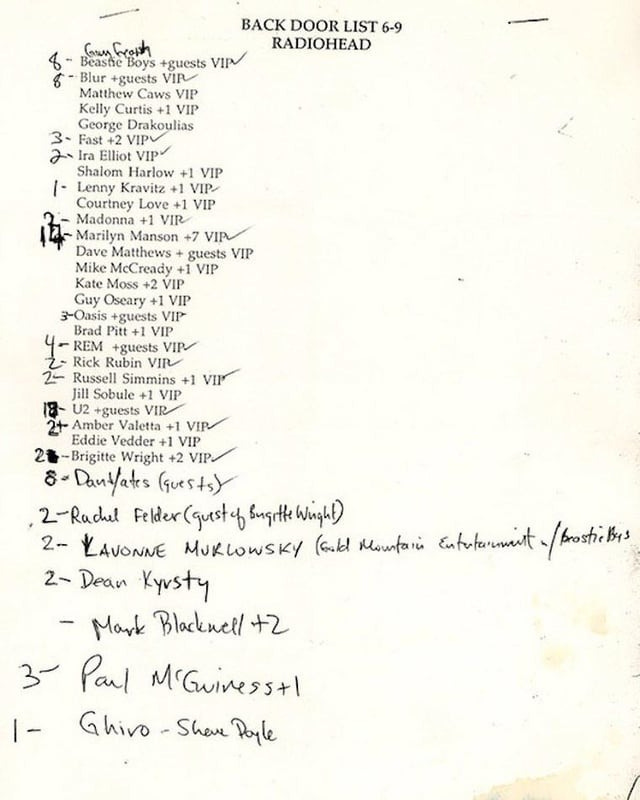 BACK DOOR LIST 6-9
RADIOHEAD
8- Beastie Boys +guests VIP✓
8- Blur +guests VIP✓
Matthew Caws VIP
Kelly Curtis +1 VIP
George Drakoulias
3- Fast +2 VIP✓
2- Ira Elliot VIP✓
Shalom Harlow +1 VIP
1- Lenny Kravitz +1 VIP✓
Courtney Love +1 VIP
2- Madonna +1 VIP✓
Marilyn Manson +7 VIP✓
Dave Matthews + guests VIP
Mike McCready +1 VIP
Kate Moss +2 VIP
Guy Oseary +1 VIP
3-Oasis +guests VIP
Brad Pitt +1 VIP
4- REM +guests VIP✓
2- Rick Rubin VIP✓
2- Russell Simmins +1 VIP✓
Jill Sobule +1 VIP
U2 +guests VIP✓
Amber Valetta +1 VIP✓
Eddie Vedder +1 VIP
Brigitte Wright +2 VIP✓
8- (guests)✓
2-Rachel Felder (guest of Brigitte Wright)
2- LAVONNE MURLOWSKY (Gold Mountain Entertainment w/Beastie Boys
2- Dean Kyrsty
- Mark Blackwell +2
3- Paul McGuiness+1
1- Ghiro - Shane Doyle